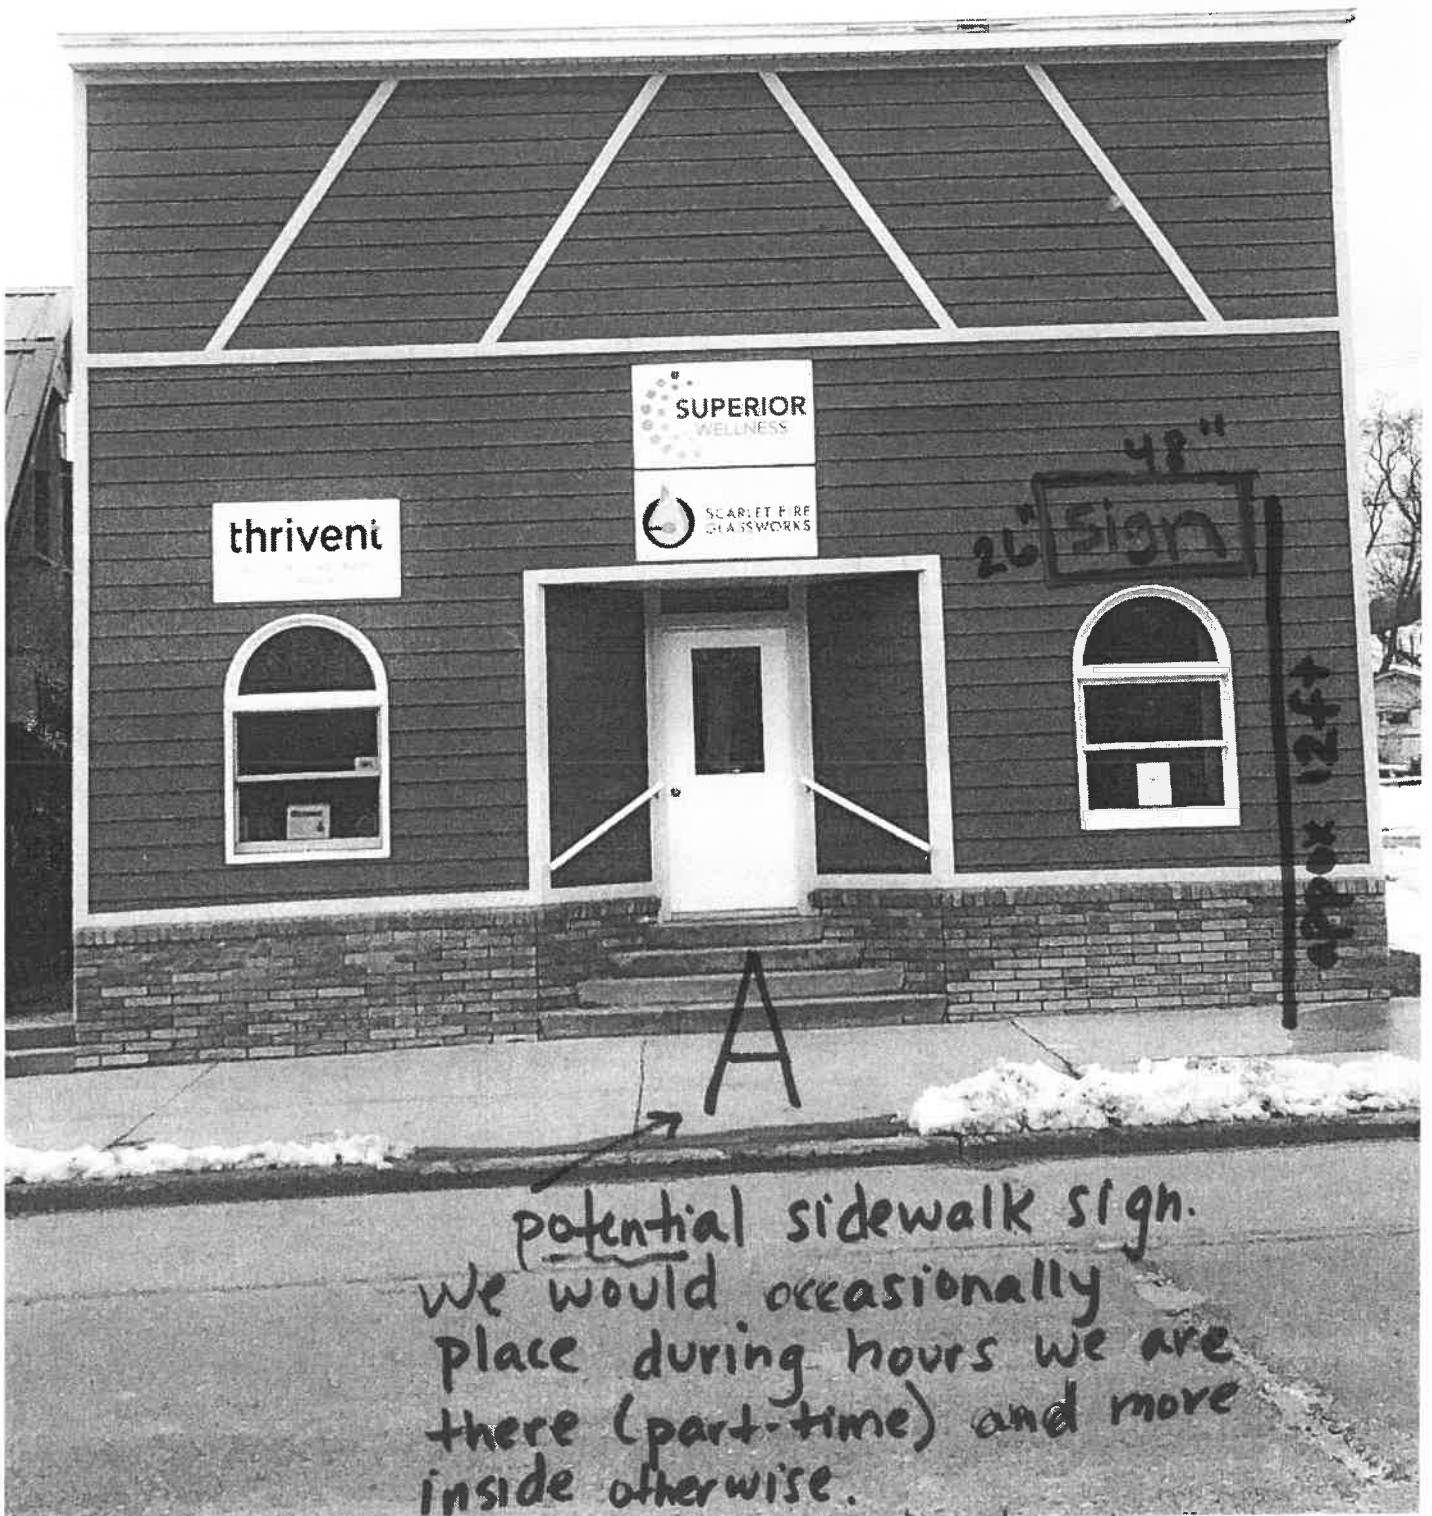 SUPERIOR
WELLNESS
SCARLET FIRE
GLASSWORKS
thrivent
48"
26"
sign
approx 12ft
A
potential sidewalk sign.
We would occasionally
place during hours we are
there (part-time) and more
inside otherwise.